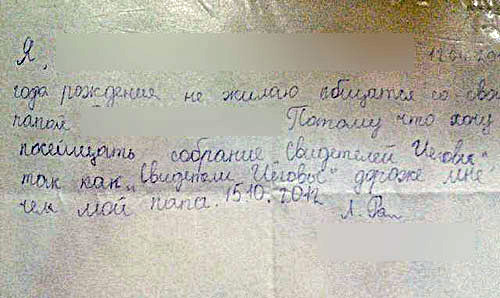 Я,
года рождения не жилаю общатся со сво
папой Потому что хочу
посещать собрание "Свидетелей Иеговы"
так как „Свидетели Иеговы" дороже мне
чем мой папа. 15.10.2012